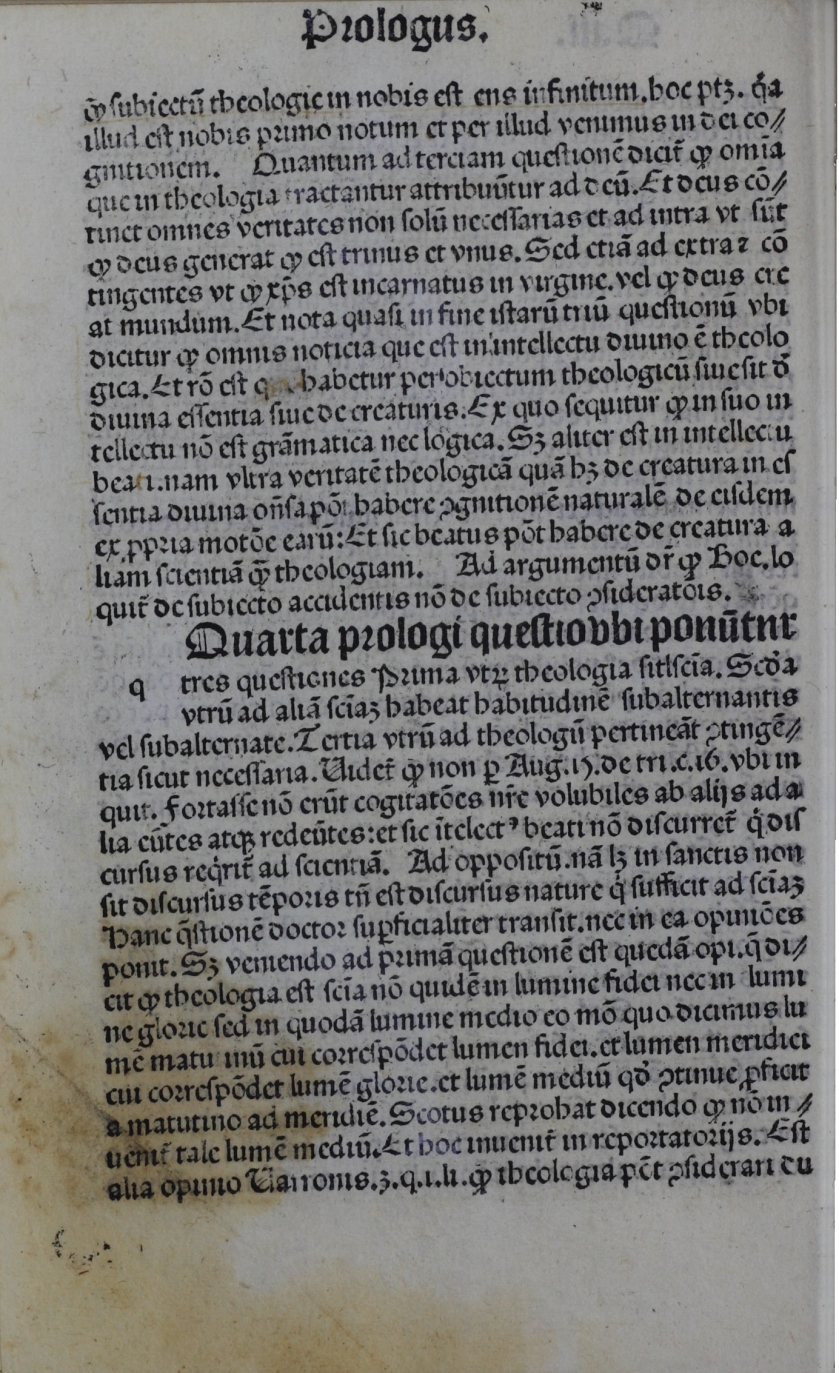 Prologus.
ꝙ subiectũ theologie in nobis est ens infinitum. hoc ptꝫ. q̃a
illud est nobis primo notum et per illud venimus in dei co⸗
gnitionem. Quantum ad terciam questionẽ dicit̃ ꝙ omĩa
que in theologia tractantur attribuũtur ad deũ. Et deus cõ⸗
tinet omnes veritates non solũ necessarias et ad intra vt sũt
ꝙ deus generat ꝙ est trinus et vnus. Sed etiã ad extra ⁊ cõ
tingentes vt ꝙ xp̃s est incarnatus in virgine. vel ꝙ deus cre
at mundum. Et nota quasi in fine istarũ triũ questionũ vbi
dicitur ꝙ omnis noticia que est in intellectu diuino ẽ theolo
gica. Et rõ est habetur per obiectum theologicũ siue sit d̃
diuina essentia siue de creaturis. Ex quo sequitur ꝙ in suo in
tellectu nõ est grãmatica nec logica. Sꝫ aliter est in intellectu
beati. nam vltra veritatẽ theologicã quã hꝫ de creatura in es
sentia diuina oñsa põt habere ꝯgnitionẽ naturalẽ de eisdem
ex ꝓpria motõe earũ: Et sic beatus põt habere de creatura a
liam scientiã ꝙ̃ theologiam. Ad argumentũ dr̃ ꝙ Boe. lo
quit̃ de subiecto accidentis nõ de subiecto ꝯsideratõis.
Quarta prologi questio vbi ponũtur
q tres questiones Prima vtꝝ theologia sit scĩa. Scd̃a
vtrũ ad aliã scĩaꝫ habeat habitudinẽ subalternantis
vel subalternate. Tertia vtrũ ad theologũ pertineãt ꝯtingẽ⸗
tia sicut necessaria. Uidet̃ ꝙ non ꝑ Aug. 15. de tri. c. 16. vbi in
quit. Fortasse nõ erũt cogitatões nr̃e volubiles ab alijs ad a
lia eũtes atqꝫ redeũtes: et sic ĩtelectꝰ beati nõ discurret̃ q̇ dis
cursus reqrit̃ ad scientiã. Ad oppositũ. nã lꝫ in sanctis non
sit discursus tẽporis tñ est discursus nature q̇ sufficit ad scĩaꝫ
Hanc q̃stionẽ doctor suꝑficialiter transit. nec in ea opiniões
ponit. Sꝫ veniendo ad primã questionẽ est quedã opi. q̃ di⸗
cit ꝙ theologia est scĩa nõ quidẽ in lumine fidei nec in lumi
ne glorie sed in quodã lumine medio eo mõ quo dicimus lu
mẽ matutinũ cui correspõdet lumen fidei. et lumen meridiei
cui correspõdet lumẽ glorie. et lumẽ mediũ qd̃ ꝯtinue ꝓficit
a matutino ad meridiẽ. Scotus reprobat dicendo ꝙ nõ in⸗
uenit̃ tale lumẽ mediũ. Et hoc inuenit̃ in reportatorijs. Est
alia opinio Uarronis. 3. q. i. li. ꝙ̃ theologia põt ꝯsiderari du